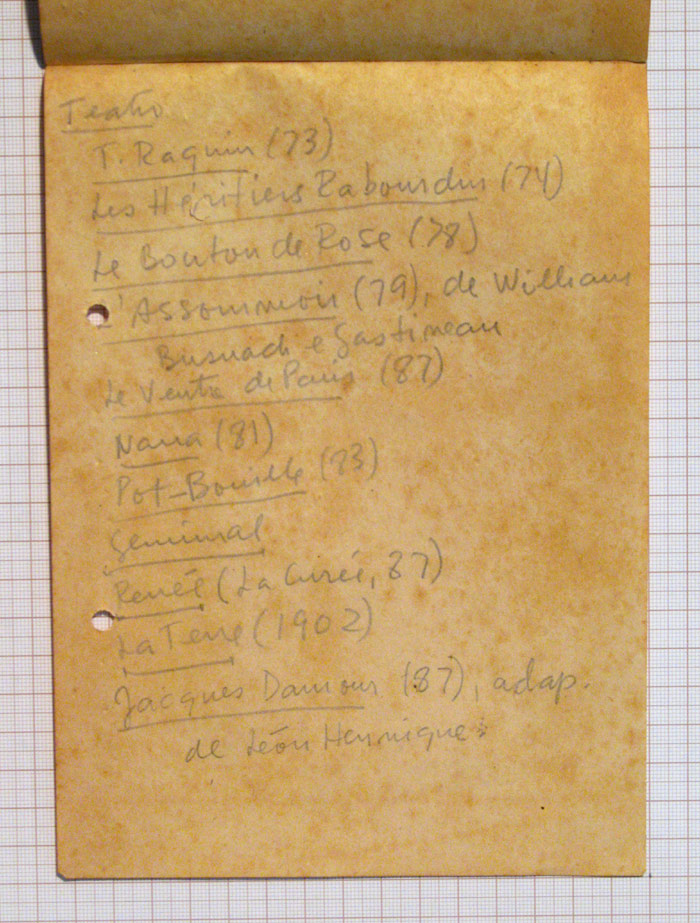 Teatro
T. Raquin (73)
Les Héritiers Rabourdin (74)
Le Bouton de Rose (78)
L'Assommoir (79), de William
Busnach e Gastineau
Le Ventre de Paris (87)
Nana (81)
Pot-Bouille (83)
Germinal
Renée (La Curée, 87)
La Terre (1902)
Jacques Damour (87), adap.
de Léon Hennique